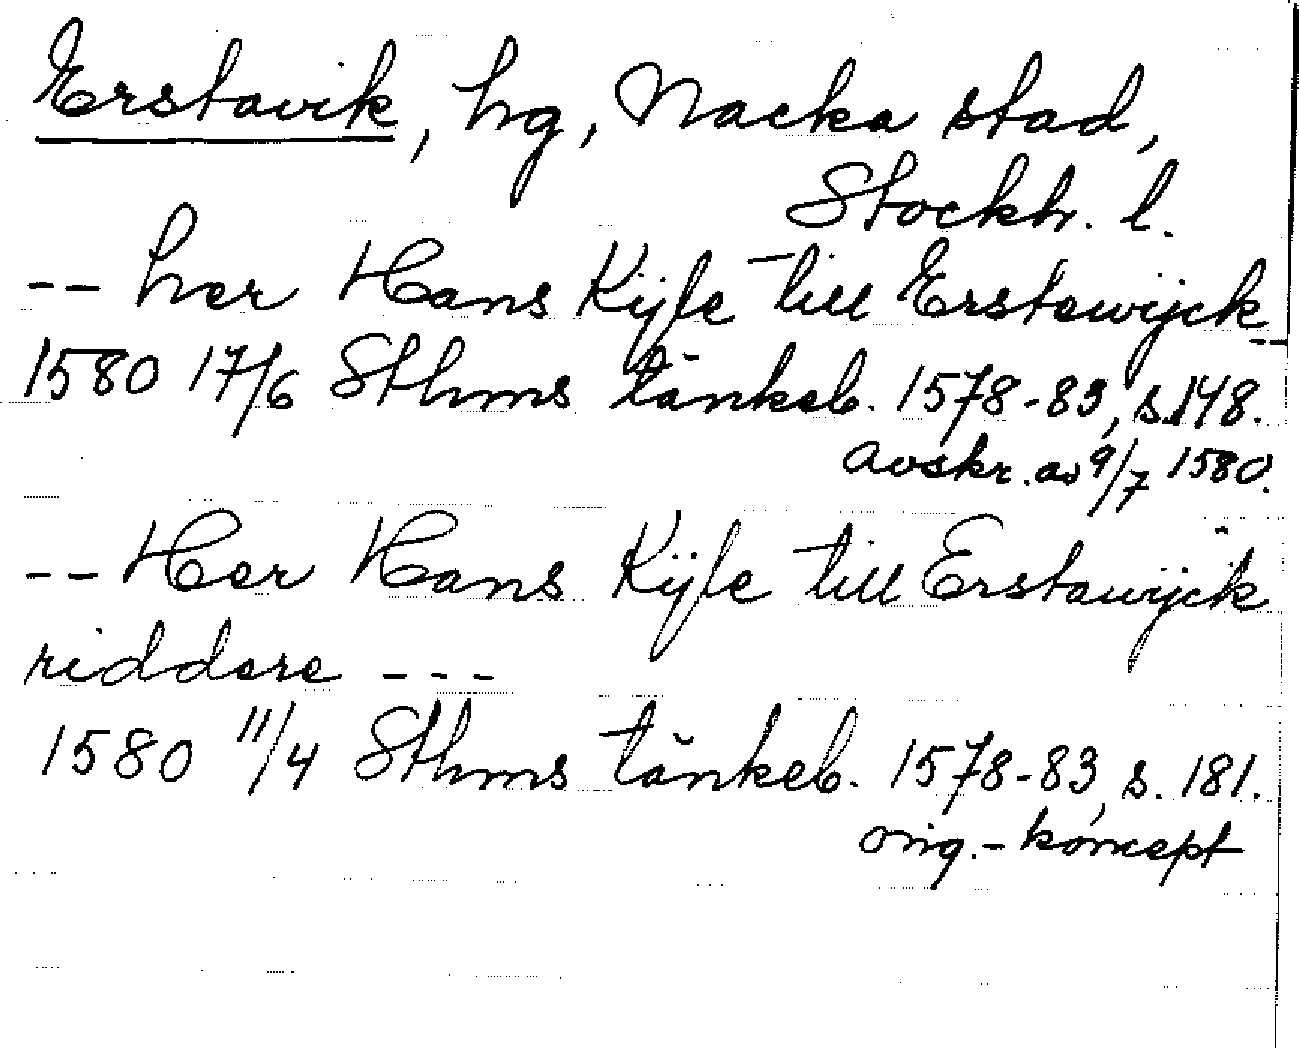 Erstavik, hg, Nacka stad,
Stockh. l.
-- her Hans Kijle till Erstawijck --
1580 17/6 Sthms tänkeb. 1578-83, s. 148.
avskr. av 9/7 1580.
-- Her Hans Kÿle till Erstawÿck
riddere ---
1580 11/4 Sthms tänkeb. 1578-83, s. 181.
orig.-koncept